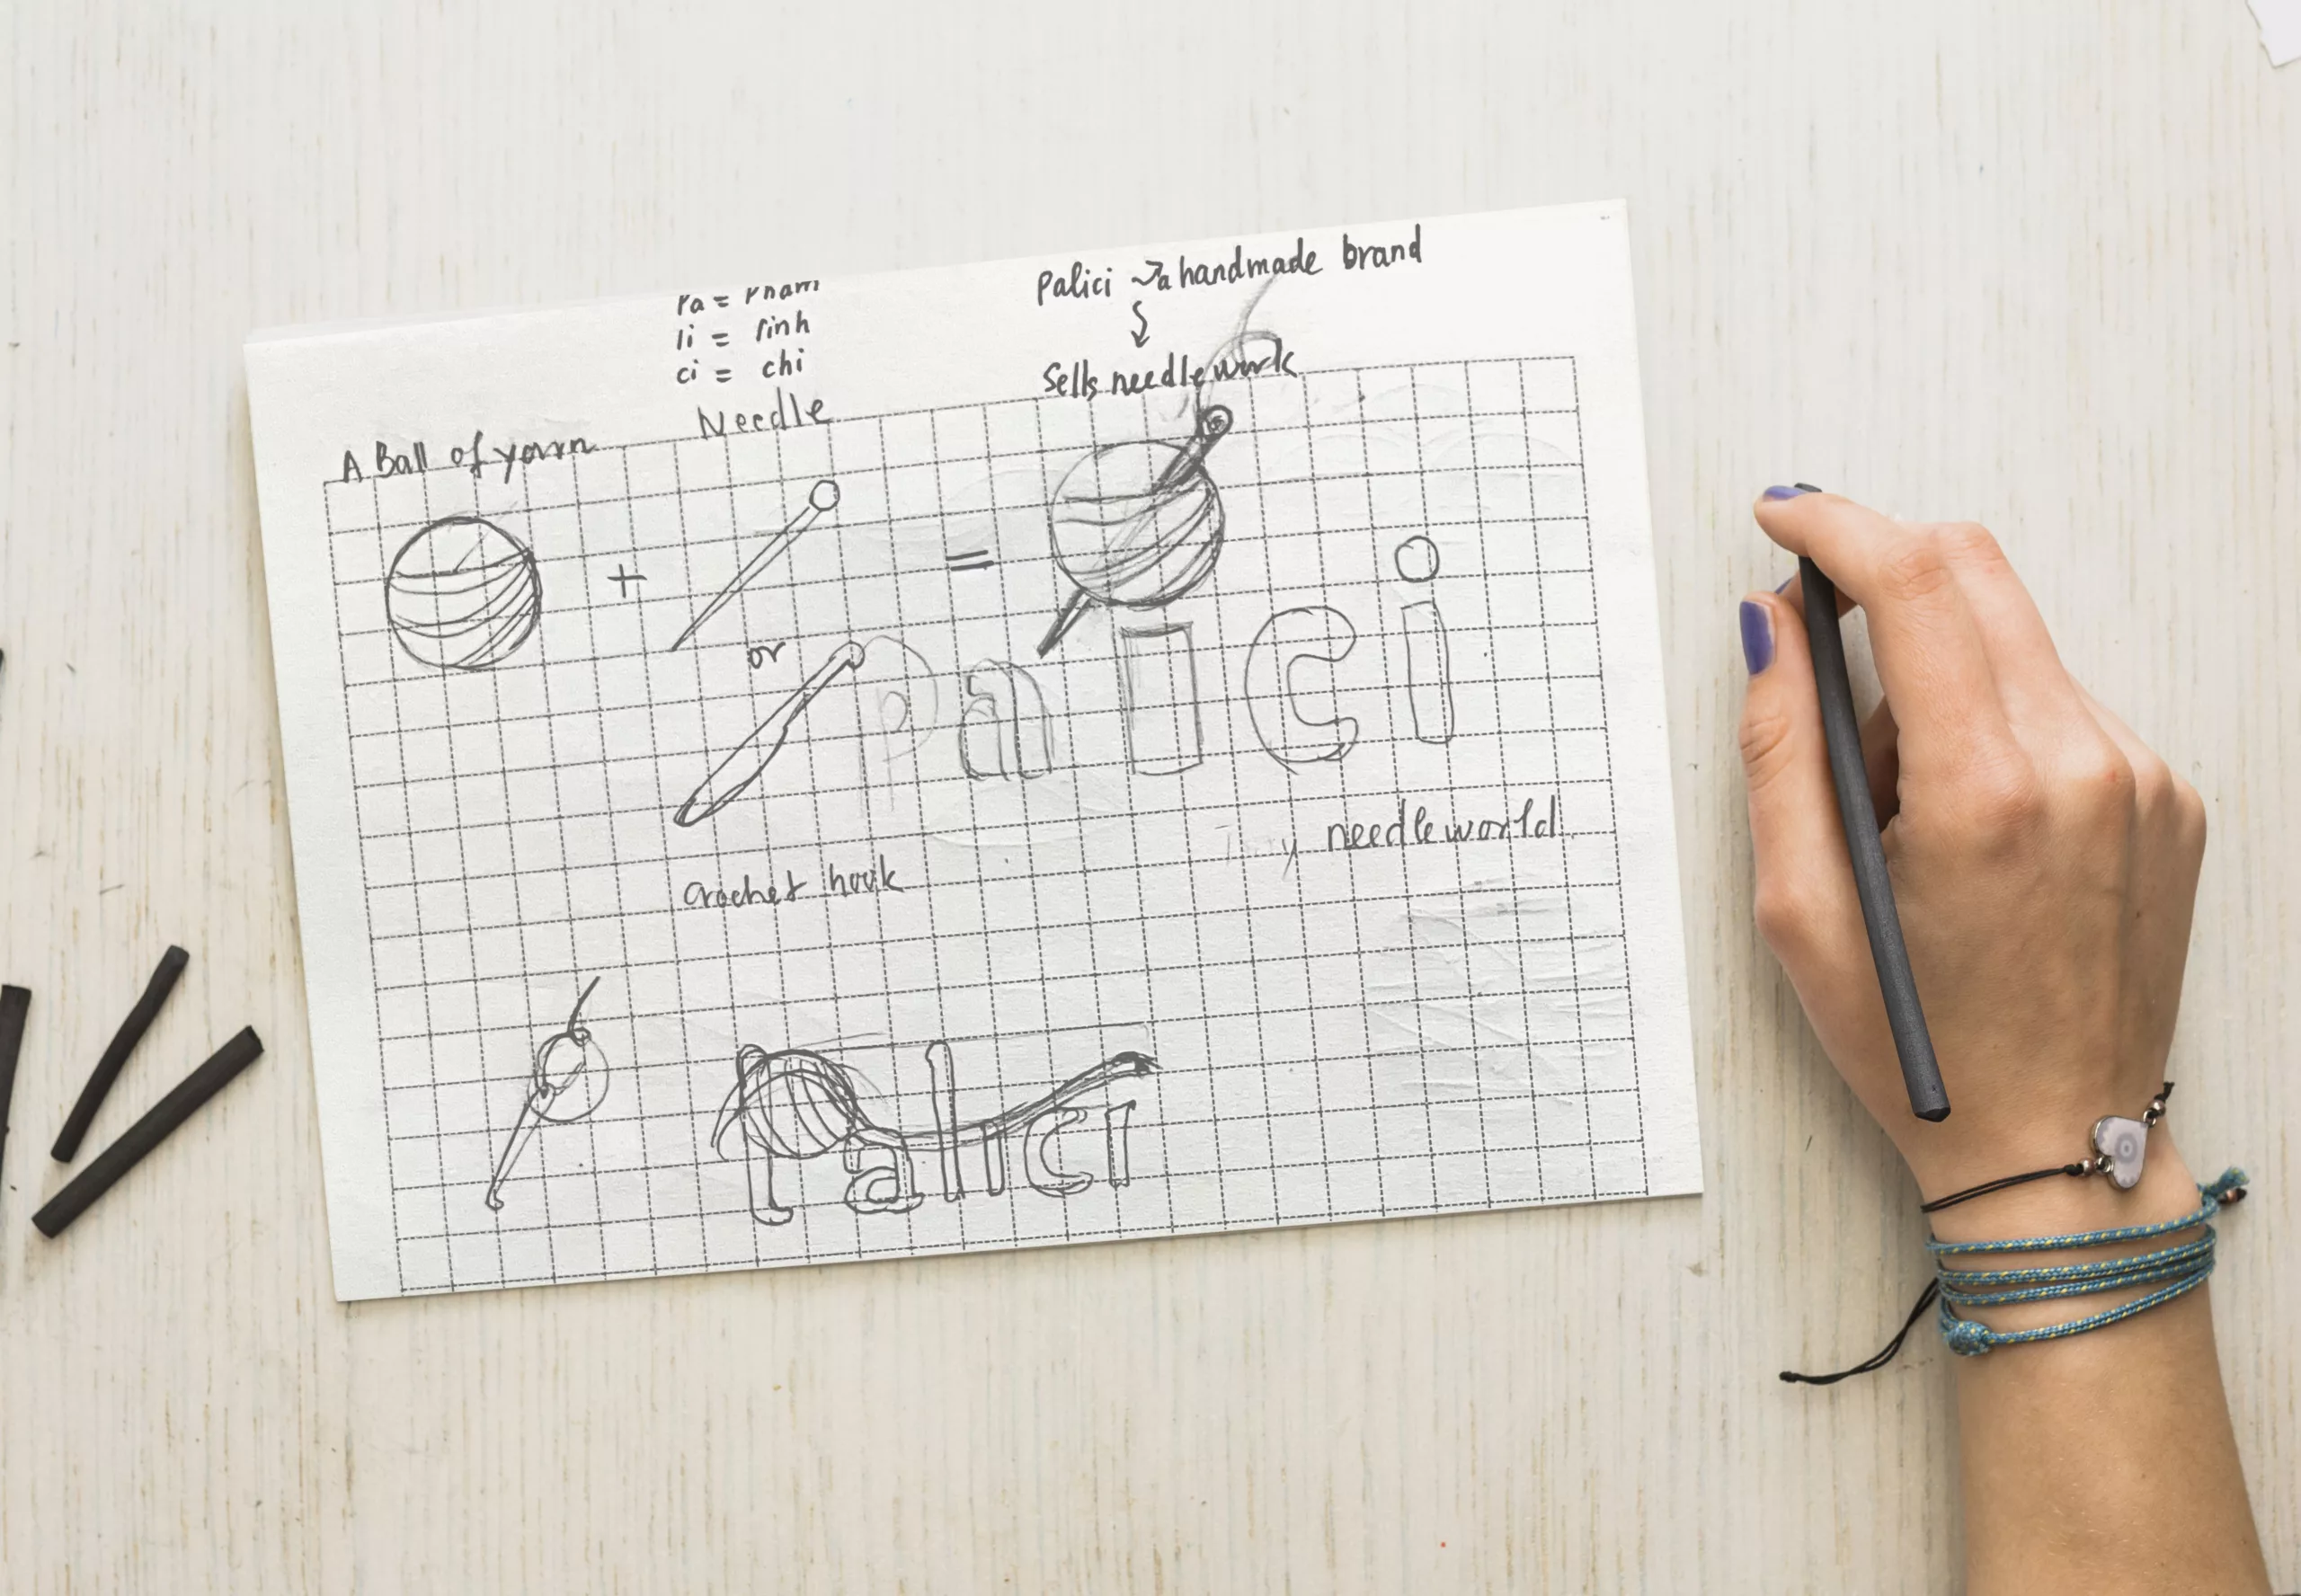 Palici → a handmade brand
↓
Sells needlework
Pa = Pham
li = linh
ci = chi
Needle
A Ball of yarn
+
=
or
Palici
needleworld
crochet hook
Palici